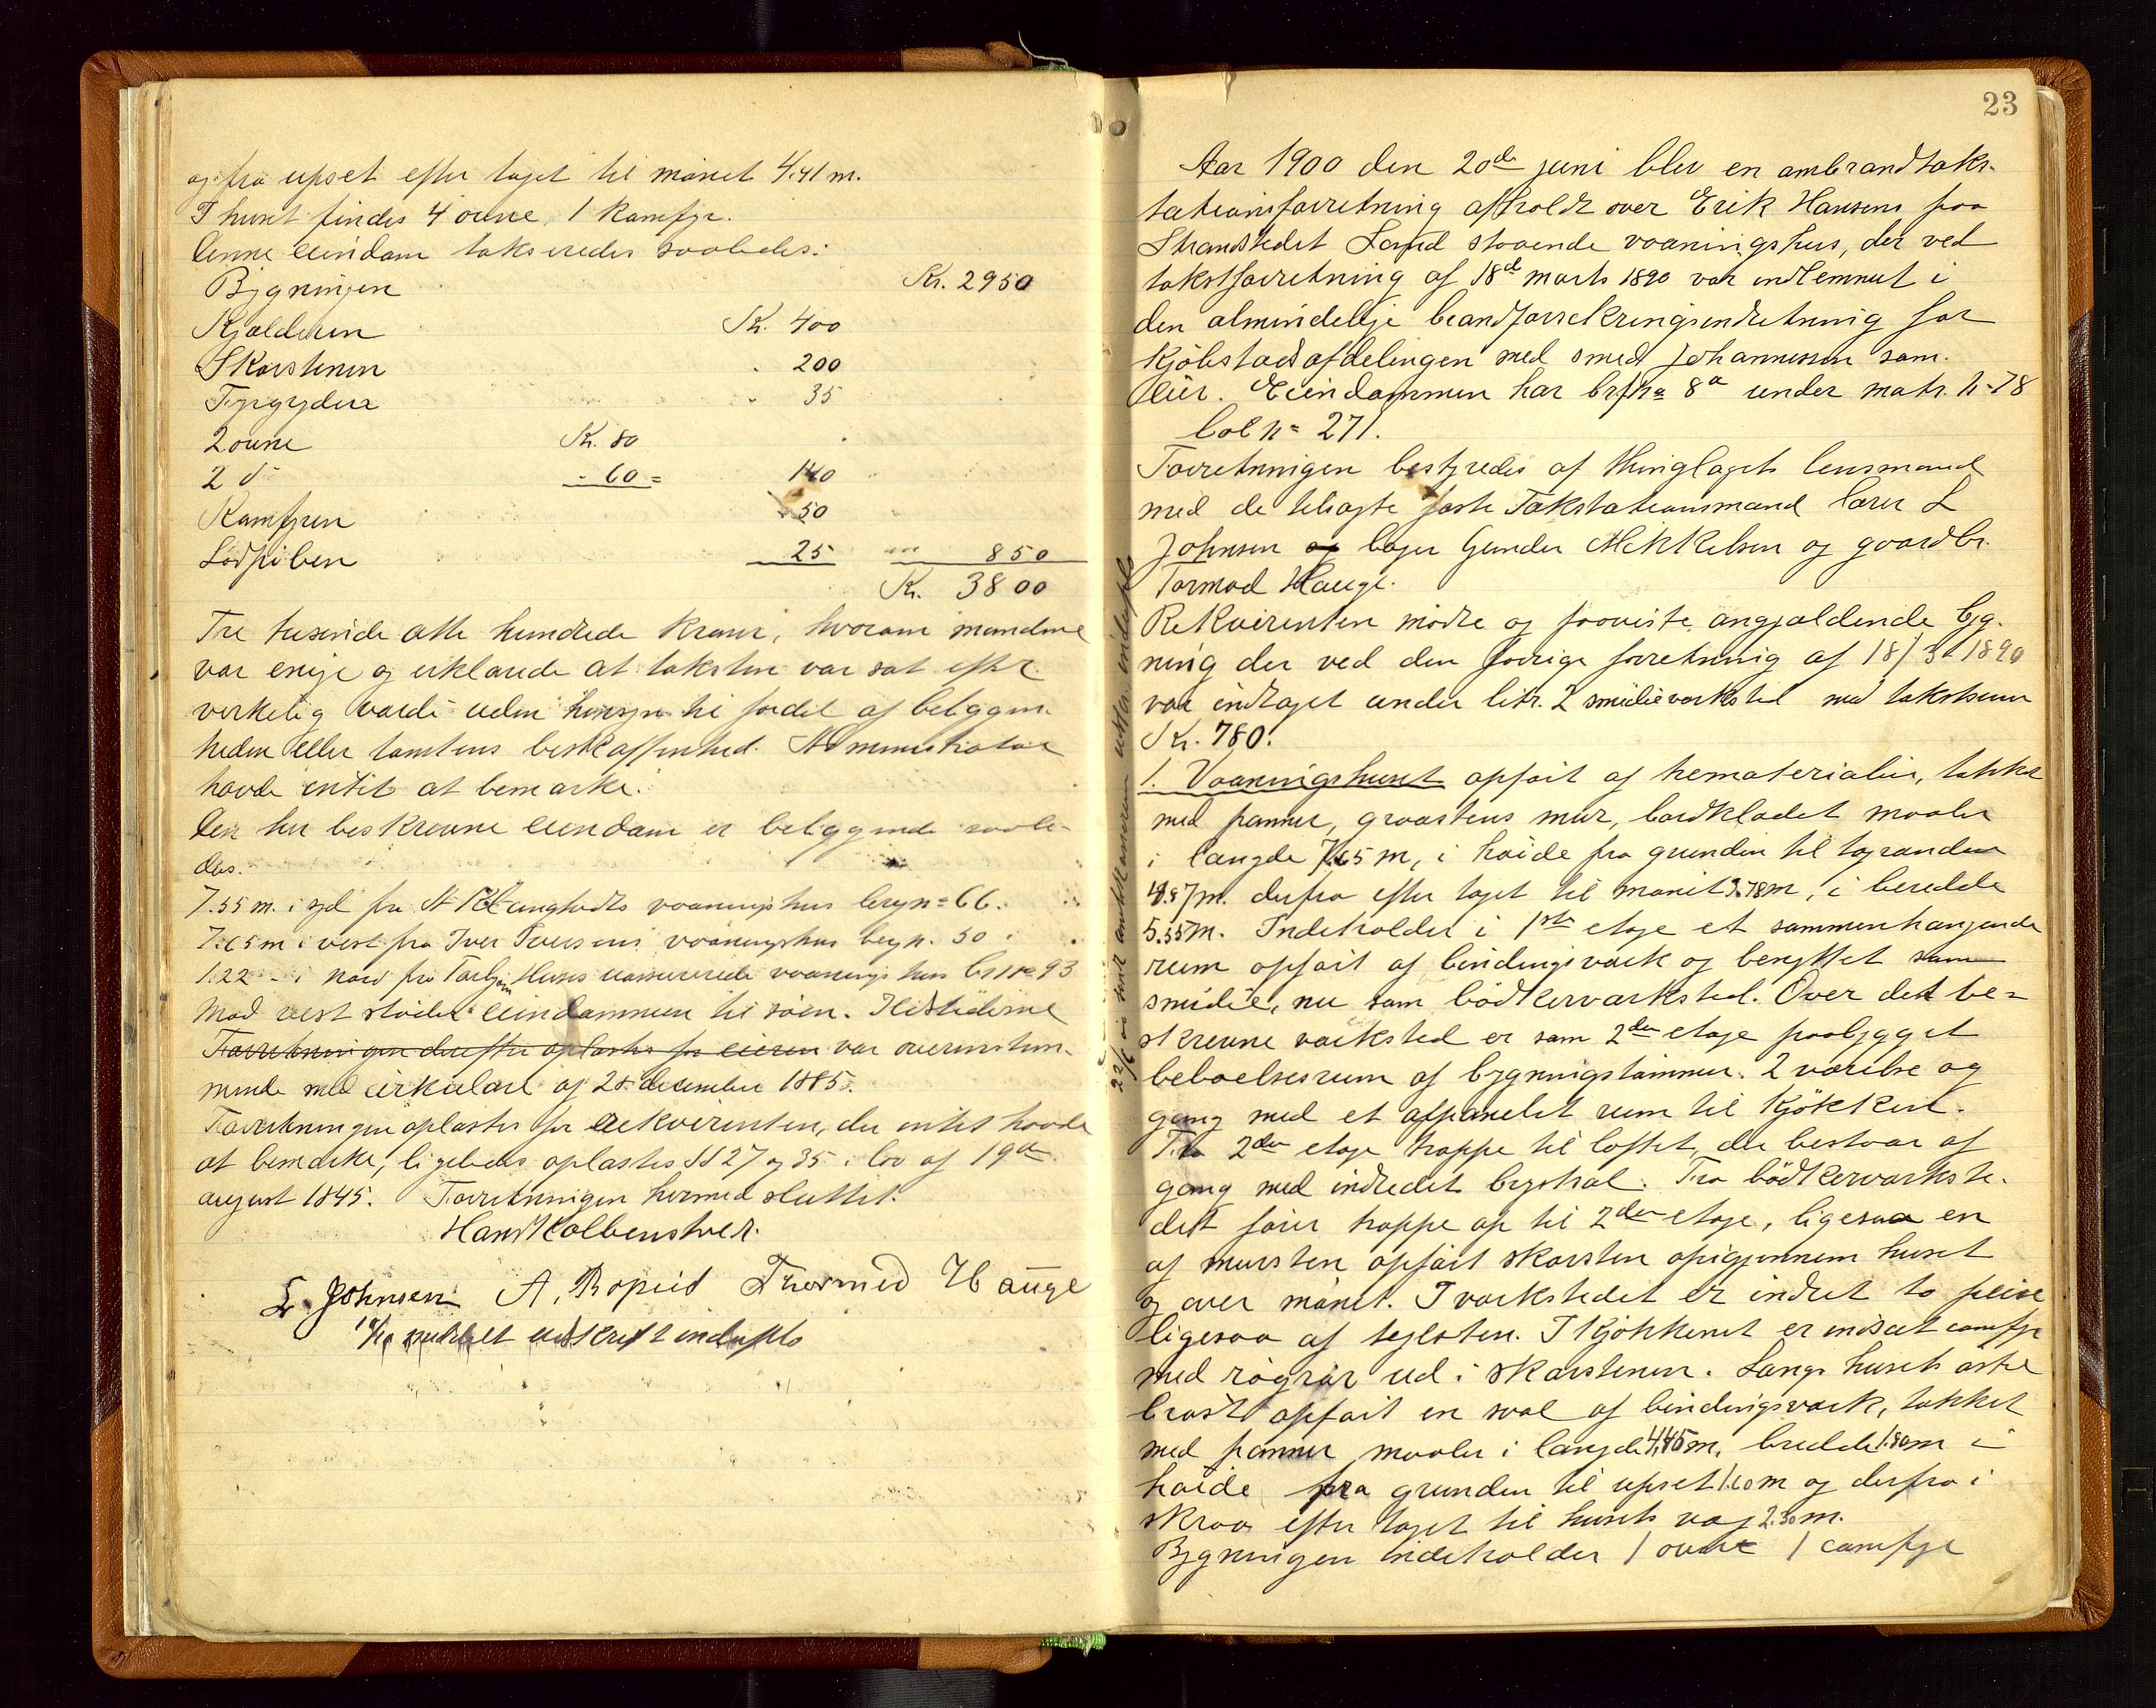 og fra upset efter taget til mønet 4.41 m.
I huset findes 4 ovne, 1 Kamfyr.
Denne eiendom takseredes saaledes:
Bygningen Kr. 2950
Kjælderen Kr. 400
Skorstenen " 200
Fyrgryden " 35
2 ovne Kr. 80
2 do - 60 = 140
Kamfyren 50
Lodpiben 25 850
Kr. 3800
Tre tusinde otte hundrede kroner, hvorom mændene
var enige og erklærede at taksten var sat efter
virkelig værdi uden hensyn til fordel af beliggen-
heden eller tomtens beskaffenhed. Administrator
havde intet at bemærke.
Den her beskrevne eiendom er beliggende saale-
des.
7.55 m. i syd fra vaaningshus brgn= 66.
7.65 m i vest fra Iver Iversens vaaningshus brgn. 50
1.22 - i nord fra Torbjørn Huses uassurerede vaaningshus brn= 93
Mod vest støder eiendommen til søen. Ildstederne
Forretningen derefter oplæstes for eieren var overenstem-
mende med cirkulære af 28 december 1885.
Forretningen oplæstes for rekvirenten, der intet havde
at bemærke, ligeledes oplæstes §§ 27 og 35 i lov af 19de
august 1845. Forretningen hermed sluttet.
Hans Kolbenstvedt.
L. Johnsen A. Ropeid Thormod Hauge
udskrift
23
Aar 1900 den 20de juni blev en ombrandtaks-
tationsforretning afholdt over Erik Hansens paa
Strandstedet Sand staaende vaaningshus, der ved
takstforretning af 18de marts 1890 var indlemmet i
den almindelige brandforsikringsindretning for
Kjøbstadsafdelingen med smed Johannessen som
eier. Eiendommen har brn= 8a under matr. n= 78
løb n= 271.
Forretningen bestyredes af thinglagets lensmand
med de tilsagte faste Takstationsmænd lærer L
Johnsen og bager Gunder Mikkelsen og gaardbr.
Tormod Hauge.
Rekvirenten mødte og paaviste angjældende byg-
ning der ved den forrige forretning af 18/3 1890
var indtaget under litr. 2 smidieværksted med takstsum
Kr. 780.
1. Vaaningshuset opført af træmaterialier, tækket
med panner, graastens mur, bordklædet maaler
i længde 7.65 m, i høide fra grunden til tagranden
4.87 m. derfra efter taget til mønet 3.78 m, i bredde
5.55 m. Indeholder i 1ste etage et sammenhængende
rum opført af bindingsværk og benyttet som
smidie, nu som bødkerværksted. Over det be-
skrevne værksted er som 2den etage paabygget
beboelsesrum af bygningstømmer. 2 værelse og
gang med et afpanelet rum til Kjøkken.
Fra 2den etage trappe til loftet, der bestaar af
gang med indredet brystval. Fra bødkerværkste-
det fører trappe op til 2den etage, ligesaa en
af mursten opført skorsten opigjennem huset
og over mønet. I værkstedet er indret to peise
ligesaa af teglsten. I Kjøkkenet er indsat comfyr
med røgrør ud i skorstenen. Langs husets østre
brøst opført en sval af bindingsværk, tækket
med panner maaler i længde 4,45 m, bredde 1.80 m i
høide fra grunden til upset 1.60 m og derfra i
skraa efter taget til husets væg 2.30 m.
Bygningen indeholder 1 ovn 1 comfyr